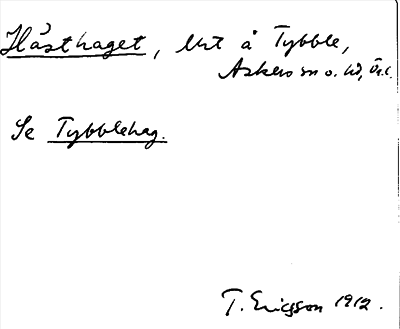 Hästhaget, lht å Tybble,
Askers sn o. hd, Ör.l.
Se Tybblehag.
T. Ericsson 1912.